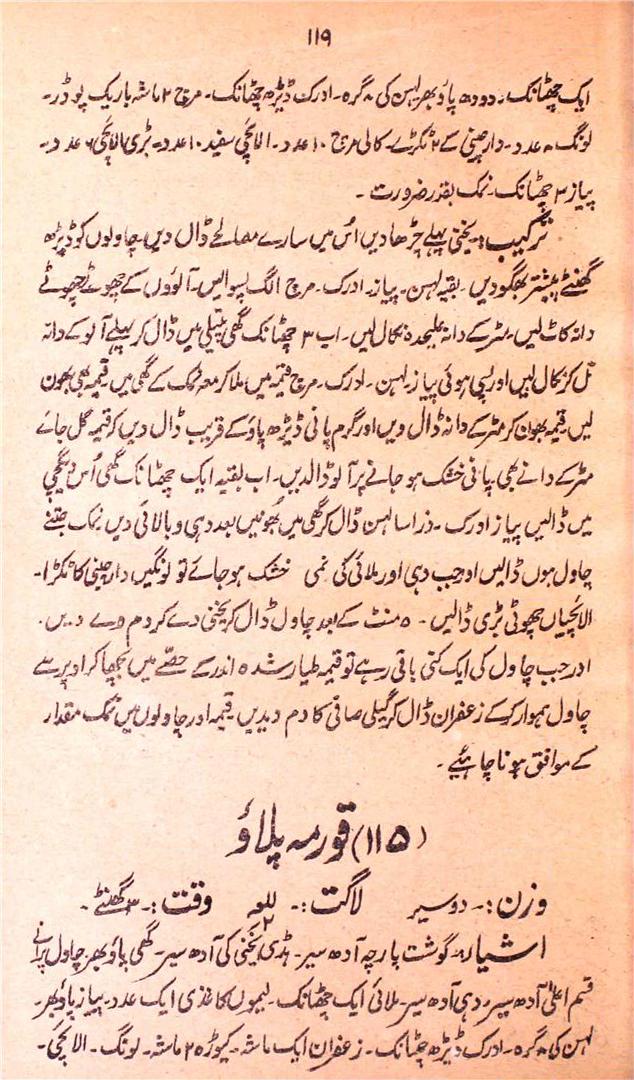 ۱۱۹
ایک چھٹانک۔ دودھ پاؤ بھر لہسن کی ۸ گرہ۔ ادرک ڈیڑھ چھٹانک۔ مرچ ۲ ماشہ باریک پوڈر۔
لونگ ۸ عدد۔ دارچینی کے ۲ ٹکڑے۔ کالی مرچ ۱۰ عدد۔ الائچی سفید ۱۰ عدد۔ بڑی الائچی ۶ عدد۔
پیاز ۳ چھٹانک۔ نمک بقدر ضرورت ۔
ترکیب:۔ یخنی پہلے چڑھا دیں اُس میں سارے مصالحے ڈال دیں۔ چاولوں کو ڈیڑھ
گھنٹے پیشتر بھگو دیں۔ بقیہ لہسن۔ پیاز۔ ادرک۔ مرچ الگ پسوالیں۔ آلوؤں کے چھوٹے چھوٹے
دانہ کاٹ لیں۔ مٹر کے دانہ علیحدہ نکال لیں۔ اب ۳ چھٹانک گھی پتیلی میں ڈال کر پہلے آلو کے دانہ
تل کر نکال لیں اور پسی ہوئی پیاز۔ لہسن۔ ادرک۔ مرچ قیمہ میں ملا کر معہ نمک کے گھی میں قیمہ بھی بھون
لیں۔ قیمہ بھون کر مٹر کے دانہ ڈال ویں اور گرم پانی ڈیڑھ پاؤ کے قریب ڈال دیں کہ قیمہ گل جائے
مٹر کے دانے بھی۔ پانی خشک ہو جانے پر آلو ڈالدیں۔ اب بقیہ ایک چھٹانک گھی اُس دیگچی
میں ڈالیں پیاز ادرک ۔ ذرا سا لہسن ڈال کر گھی میں بھُونیں بعد دہی و بالائی دیں نمک جتنے
چاول ہوں ڈالیں اوجب دہی اور ملائی کی نمی خشک ہو جائے تو لونگیں دارچینی کا ٹکڑا۔
الائچیاں چھوٹی بڑی ڈالیں۔ ۵ منٹ کے بعد چاول ڈال کر یخنی دے کر دم دے دیں۔
ادر جب چاول کی ایک کنی باقی رہے تو قیمہ طیار شدہ اندر کے حصّے میں بچھا کر اوپر سے
چاول ہموار کرکے زعفران ڈال کر گیلی صافی کا دم دیدیں۔ قیمہ اور چاولوں میں نمک مقدار
کے موافق ہونا چاہئیے ۔
(۱۱۵) قورمہ پلاؤ
وزن:۔ دو سیر لاگت:۔ وقت:۔ ۳ گھنٹے۔
اشیاء:۔ گوشت پارچہ آدھ سیر۔ ہڈی یخنی کی آدھ سیر۔ گھی پاؤ بھر۔ چاول پرانے
قسم اعلیٰ آدھ سیر۔ دہی آدھ سیر۔ ملائی ایک چھٹانک۔ لیموں کاغذی ایک عدد۔ پیاز پاؤ بھر۔
لہسن کی ۸ گرہ۔ ادرک ڈیڑھ چھٹانک۔ زعفران ایک ماشہ۔ کیوڑہ ۲ ماشہ۔ لونگ۔ الائچی۔